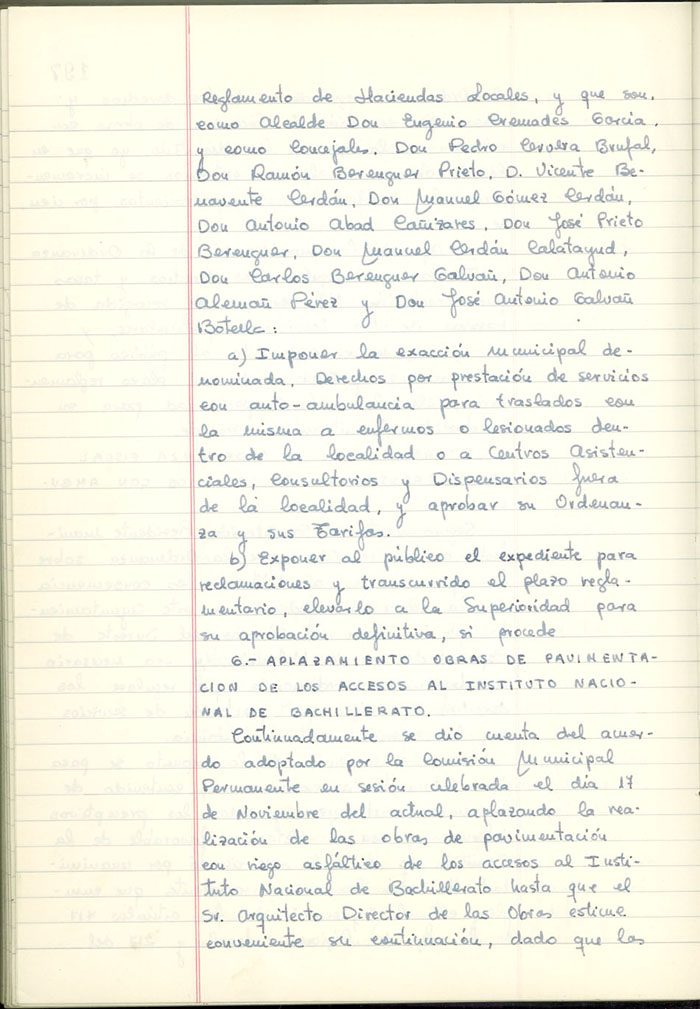 Reglamento de Haciendas Locales, y que son,
como Alcalde Don Eugenio Cremades García,
y como Concejales, Don Pedro Cervera Brufal,
Don Ramón Berenguer Prieto, D. Vicente Be-
navente Cerdán, Don Manuel Gómez Cerdán,
Don Antonio Abad Cañizares, Don José Prieto
Berenguer, Don Manuel Cerdán Calatayud,
Don Carlos Berenguer Galvañ, Don Antonio
Alemañ Pérez y Don José Antonio Galvañ
Botella:
a) Imponer la exacción municipal de-
nominada, Derechos por prestación de servicios
con auto-ambulancia para traslados con
la misma a enfermos o lesionados den-
tro de la localidad o a Centros Asisten-
ciales, Consultorios y Dispensarios fuera
de la localidad, y aprobar su Ordenan-
za y sus Tarifas.
b) Exponer al público el expediente para
reclamaciones y transcurrido el plazo regla-
mentario, elevarlo a la Superioridad para
su aprobación definitiva, si procede
6.- APLAZAMIENTO OBRAS DE PAVIMENTA-
CION DE LOS ACCESOS AL INSTITUTO NACIO-
NAL DE BACHILLERATO.
Continuadamente se dió cuenta del acuer-
do adoptado por la Comisión Municipal
Permanente en sesión celebrada el día 17
de Noviembre del actual, aplazando la rea-
lización de las obras de pavimentación
con riego asfáltico de los accesos al Insti-
tuto Nacional de Bachillerato hasta que el
Sr. Arquitecto Director de las Obras estime
conveniente su continuación, dado que las